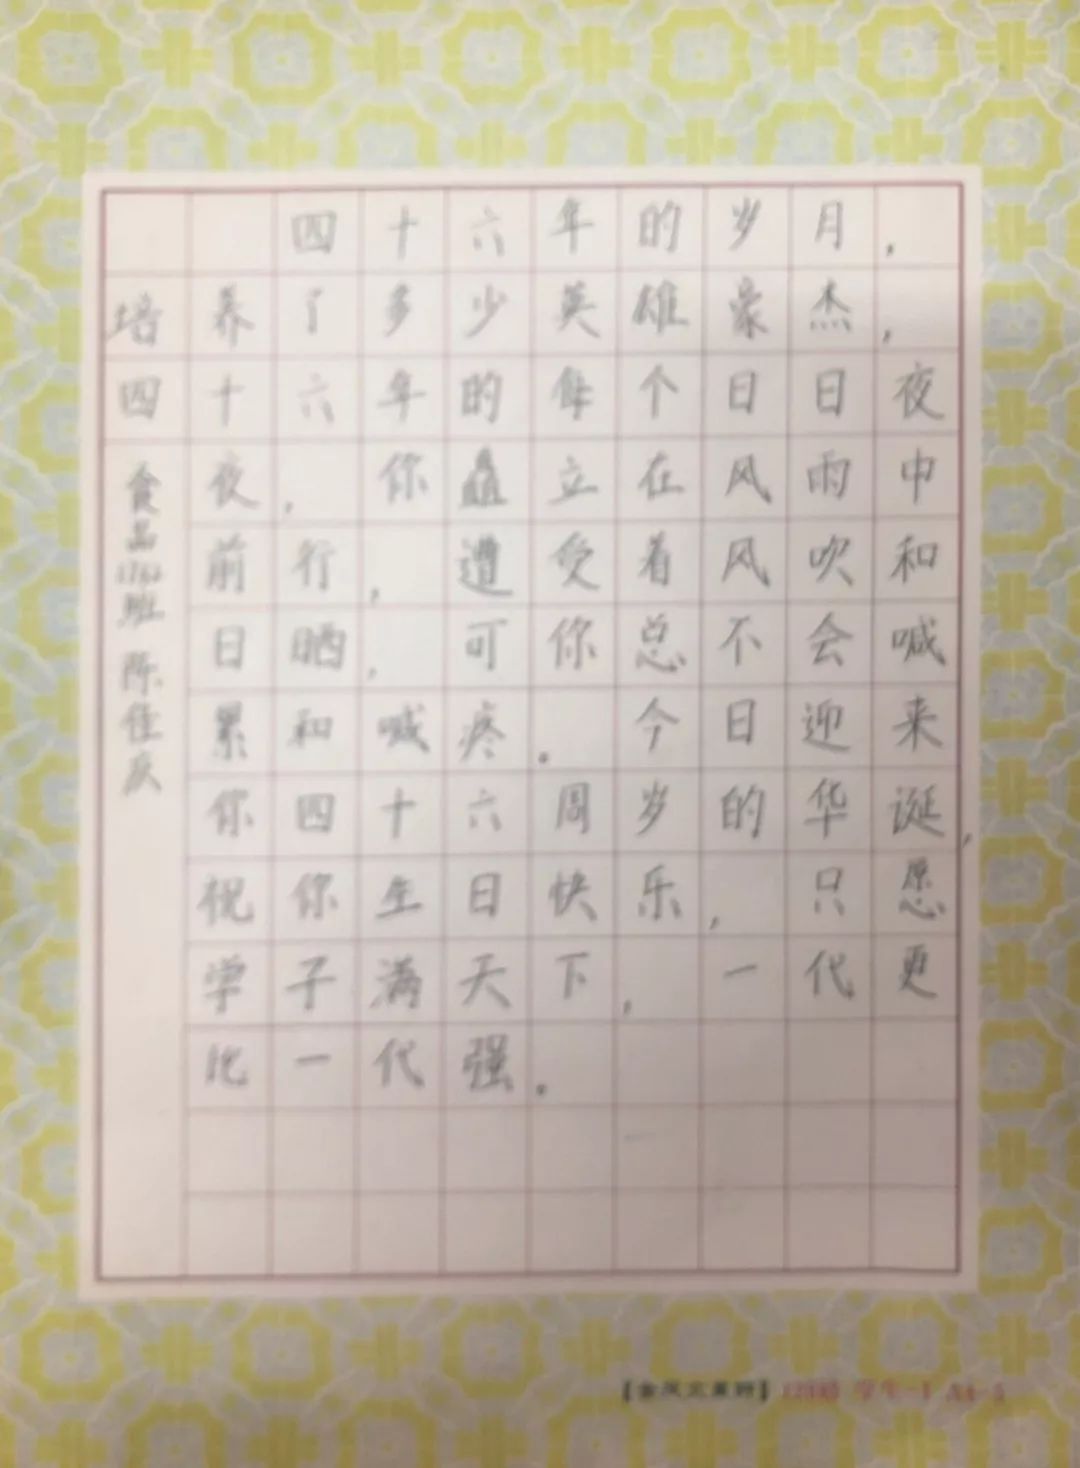 四十六年的岁月，
培养了多少英雄豪杰，
四十六年的每个日日夜
夜，你矗立在风雨中
前行，遭受着风吹和
日晒，可你总不会喊
累和喊疼。今日迎来
你四十六周岁的华诞，
祝你生日快乐，只愿
学子满天下，一代更
比一代强。
食品1762班 陈佳庆
学生-1 A4-5